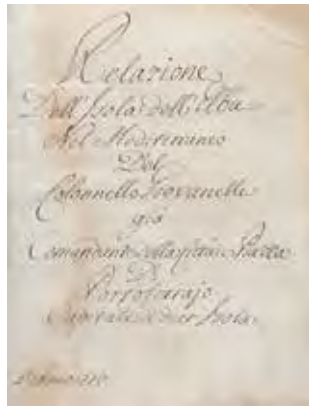 Relazione
Dell'Isola dell'Elba
Nel Mediterraneo
Del
Colonnello Giovanelli
già
Comandante della Piazza
Di
Portoferrajo
Capitale di Isola